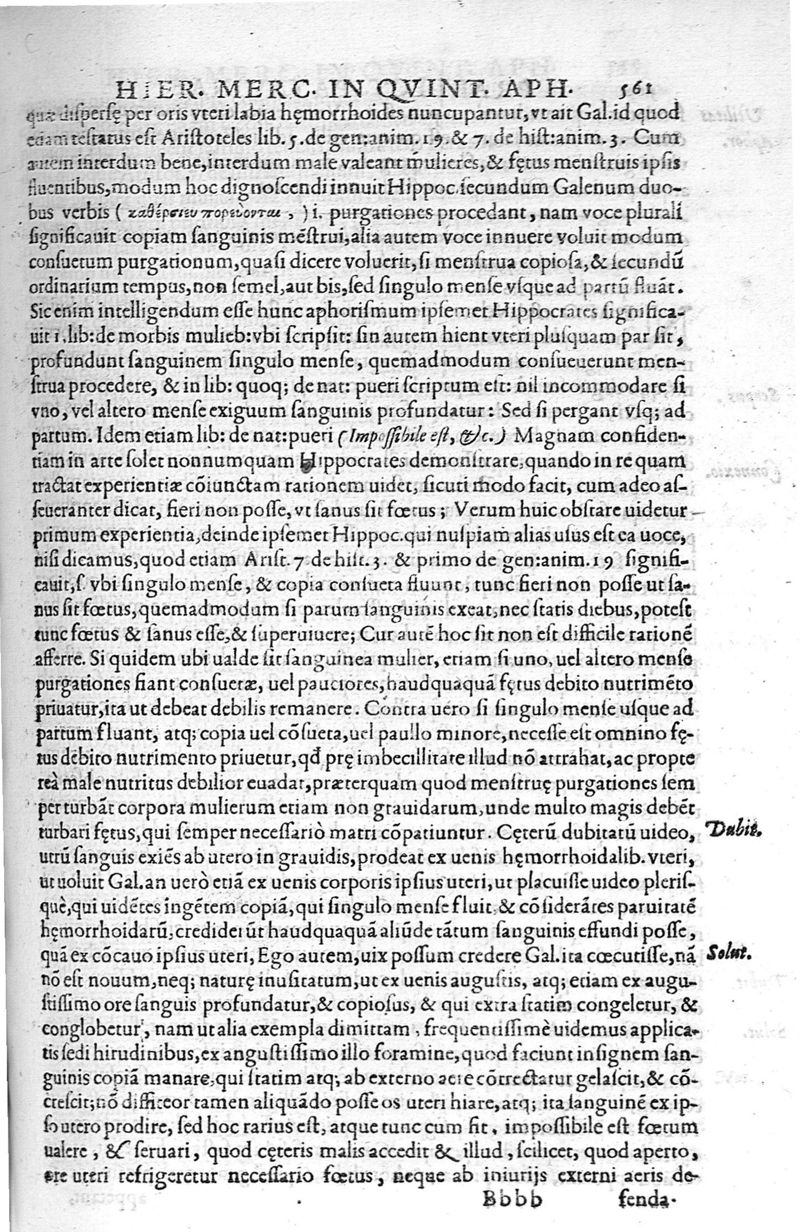 HIER. MERC. IN QVINT. APH. 561
quæ dispersę per oris vteri labia hęmorrhoides nuncupantur, vt ait Gal. id quod
etiam testatus est Aristoteles lib. 5. de gen:anim. 19. & 7. de hist:anim. 3. Cum
autem interdum bene, interdum male valeant mulieres, & fętus menstruis ipsis
fluentibus, modum hoc dignoscendi innuit Hippoc. secundum Galenum duo-
bus verbis ( ) i. purgationes procedant, nam voce plurali
significauit copiam sanguinis mẽstrui, alia autem voce innuere voluit modum
consuetum purgationum, quasi dicere voluerit, si menstrua copiosa, & secundũ
ordinarium tempus, non semel, aut bis, sed singulo mense vsque ad partũ fluãt.
Sic enim intelligendum esse hunc aphorismum ipsemet Hippocrates significa-
uit 1. lib: de morbis mulieb: vbi scripsit: sin autem hient vteri plusquam par sit,
profundunt sanguinem singulo mense, quemadmodum consueuerunt men-
strua procedere, & in lib: quoq; de nat: pueri scriptum est: nil incommodare si
vno, vel altero mense exiguum sanguinis profundatur: Sed si pergant vsq; ad
partum. Idem etiam lib: de nat: pueri (Impossibile est, &c.) Magnam confiden-
tiam in arte solet nonnumquam Hippocrates demonstrare, quando in re quam
tractat experientiæ cõiunctam rationem uidet, sicuti modo facit, cum adeo as-
seueranter dicat, fieri non posse, vt sanus sit fœtus; Verum huic obstare uidetur
primum experientia, deinde ipsemet Hippoc. qui nuspiam alias usus est ea uoce,
nisi dicamus, quod etiam Arist. 7 de hist. 3. & primo de gen:anim. 19 signifi-
cauit, s. vbi singulo mense, & copia consueta fluunt, tunc fieri non posse ut sa-
nus sit fœtus, quemadmodum si parum sanguinis exeat, nec statis diebus, potest
tunc fœtus & sanus esse, & superuiuere; Cur autẽ hoc sit non est difficile rationẽ
afferre. Si quidem ubi ualde sit sanguinea mulier, etiam si uno, uel altero mense
purgationes fiant consuetæ, uel pauciores, haudquaquã fętus debito nutrimẽto
priuatur, ita ut debeat debilis remanere. Contra uero si singulo mense usque ad
partum fluant, atq; copia uel cõsueta, uel paullo minore, necesse est omnino fę-
tus debito nutrimento priuetur, qđ prę imbecillitate illud nõ attrahat, ac propte
reà male nutritus debilior euadat, præterquam quod menstruę purgationes sem
per turbãt corpora mulierum etiam non grauidarum, unde multo magis debẽt
turbari fętus, qui semper necessariò matri cõpatiuntur. Cęterũ dubitatũ uideo, Dubit.
utrũ sanguis exiẽs ab utero in grauidis, prodeat ex uenis hęmorrhoidalib. vteri,
ut uoluit Gal. an uerò etiã ex uenis corporis ipsius uteri, ut placuisse uideo pleris-
què, qui uidẽtes ingẽtem copiã, qui singulo mense fluit & cõsiderãtes paruitatẽ
hęmorrhoidarũ, crediderũt haudquaquã aliũde tãtum sanguinis effundi posse,
quã ex cõcauo ipsius uteri, Ego autem, uix possum credere Gal. ita cœcutisse, nã Solut.
nõ est nouum, neq; naturę inusitatum, ut ex uenis augustis, atq; etiam ex augu-
stissimo ore sanguis profundatur, & copiosus, & qui extra statim congeletur, &
conglobetur, nam ut alia exempla dimittam, frequentissimè uidemus applica-
tis sedi hirudinibus, ex angustissimo illo foramine, quod faciunt insignem san-
guinis copiã manare, qui statim atq; ab externo aere cõtrectatur gelascit, & cõ-
crescit; nõ diffiteor tamen aliquãdo posse os uteri hiare, atq; ita sanguinẽ ex ip-
so utero prodire, sed hoc rarius est, atque tunc cum sit, impossibile est fœtum
ualere, & seruari, quod cęteris malis accedit & illud, scilicet, quod aperto,
ore uteri refrigeretur necessario fœtus, neque ab iniurijs externi aeris de-
Bbbb fenda-